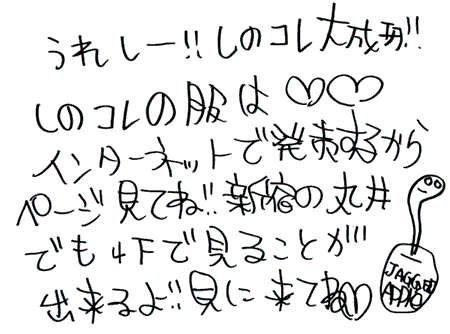 うれしー!!しのコレ大成功!!
しのコレの服は♡♡
インターネットで発売するから
ページ見てね!!新宿の丸井
でも4Fで見ることが
出来るよ!!見に来てね♡
JAGGED
APPLE